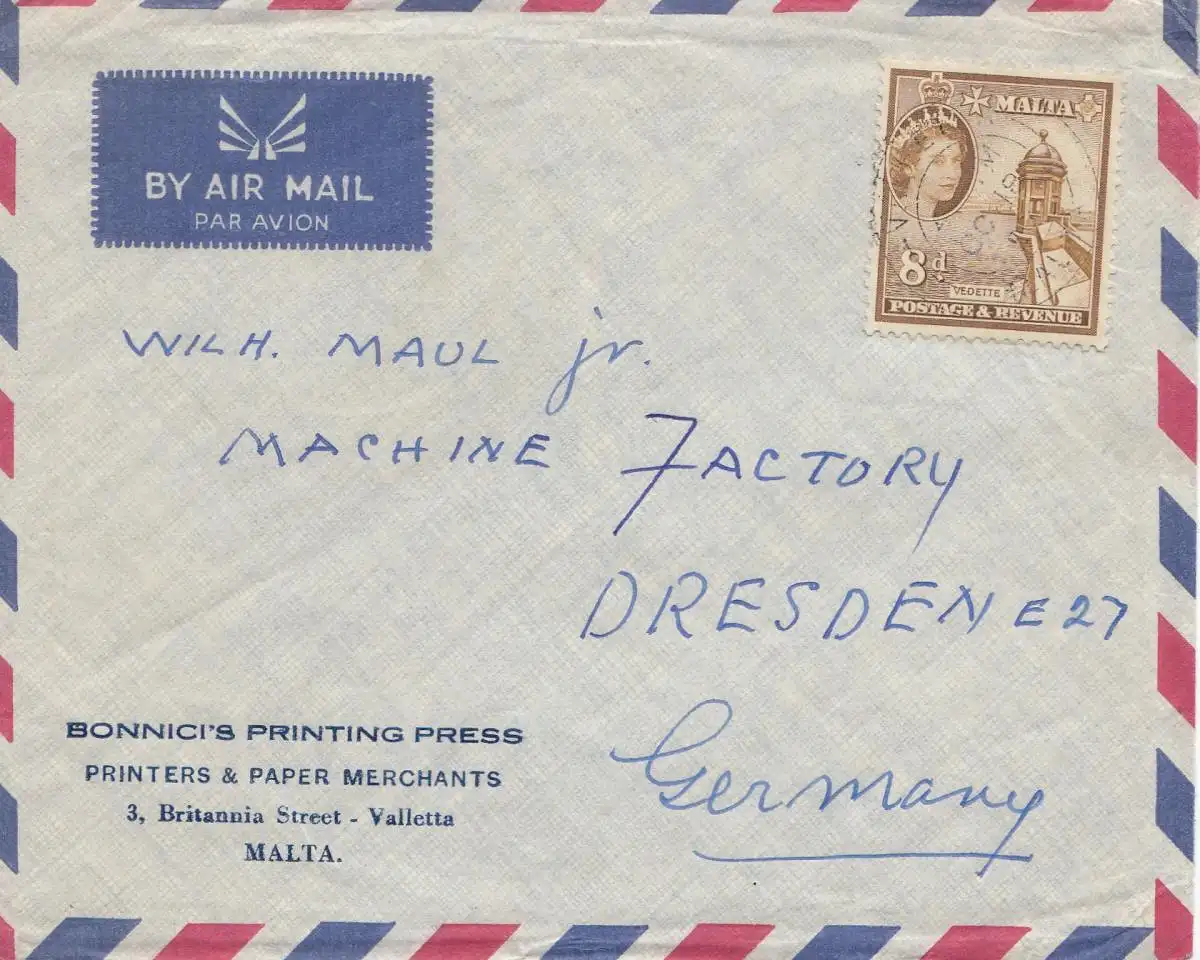 BY AIR MAIL
PAR AVION
MALTA
8d
VEDETTE
POSTAGE & REVENUE
WILH. MAUL jr.
MACHINE FACTORY
DRESDEN E 27
Germany
BONNICI'S PRINTING PRESS
PRINTERS & PAPER MERCHANTS
3, Britannia Street - Valletta
MALTA.